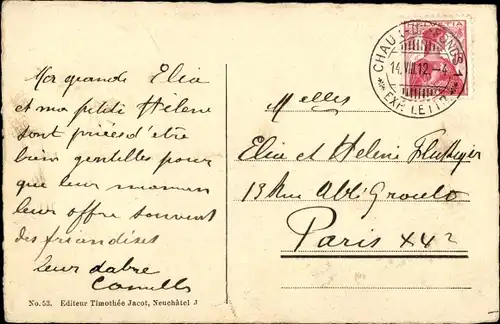 Ma grande Elia
et ma petite Hélène
sont priées d'être
bien gentilles pour
que leur maman
leur offre souvent
des friandises
Leur
Camille
No. 53. Editeur Timothée Jacot, Neuchâtel J
HELVETIA
CHAUX-DE-FONDS
14.VII.12.-4
EXP. LETTR.
Melles
Elia et Hélène
13 Rue Abbé Groult
Paris XV e